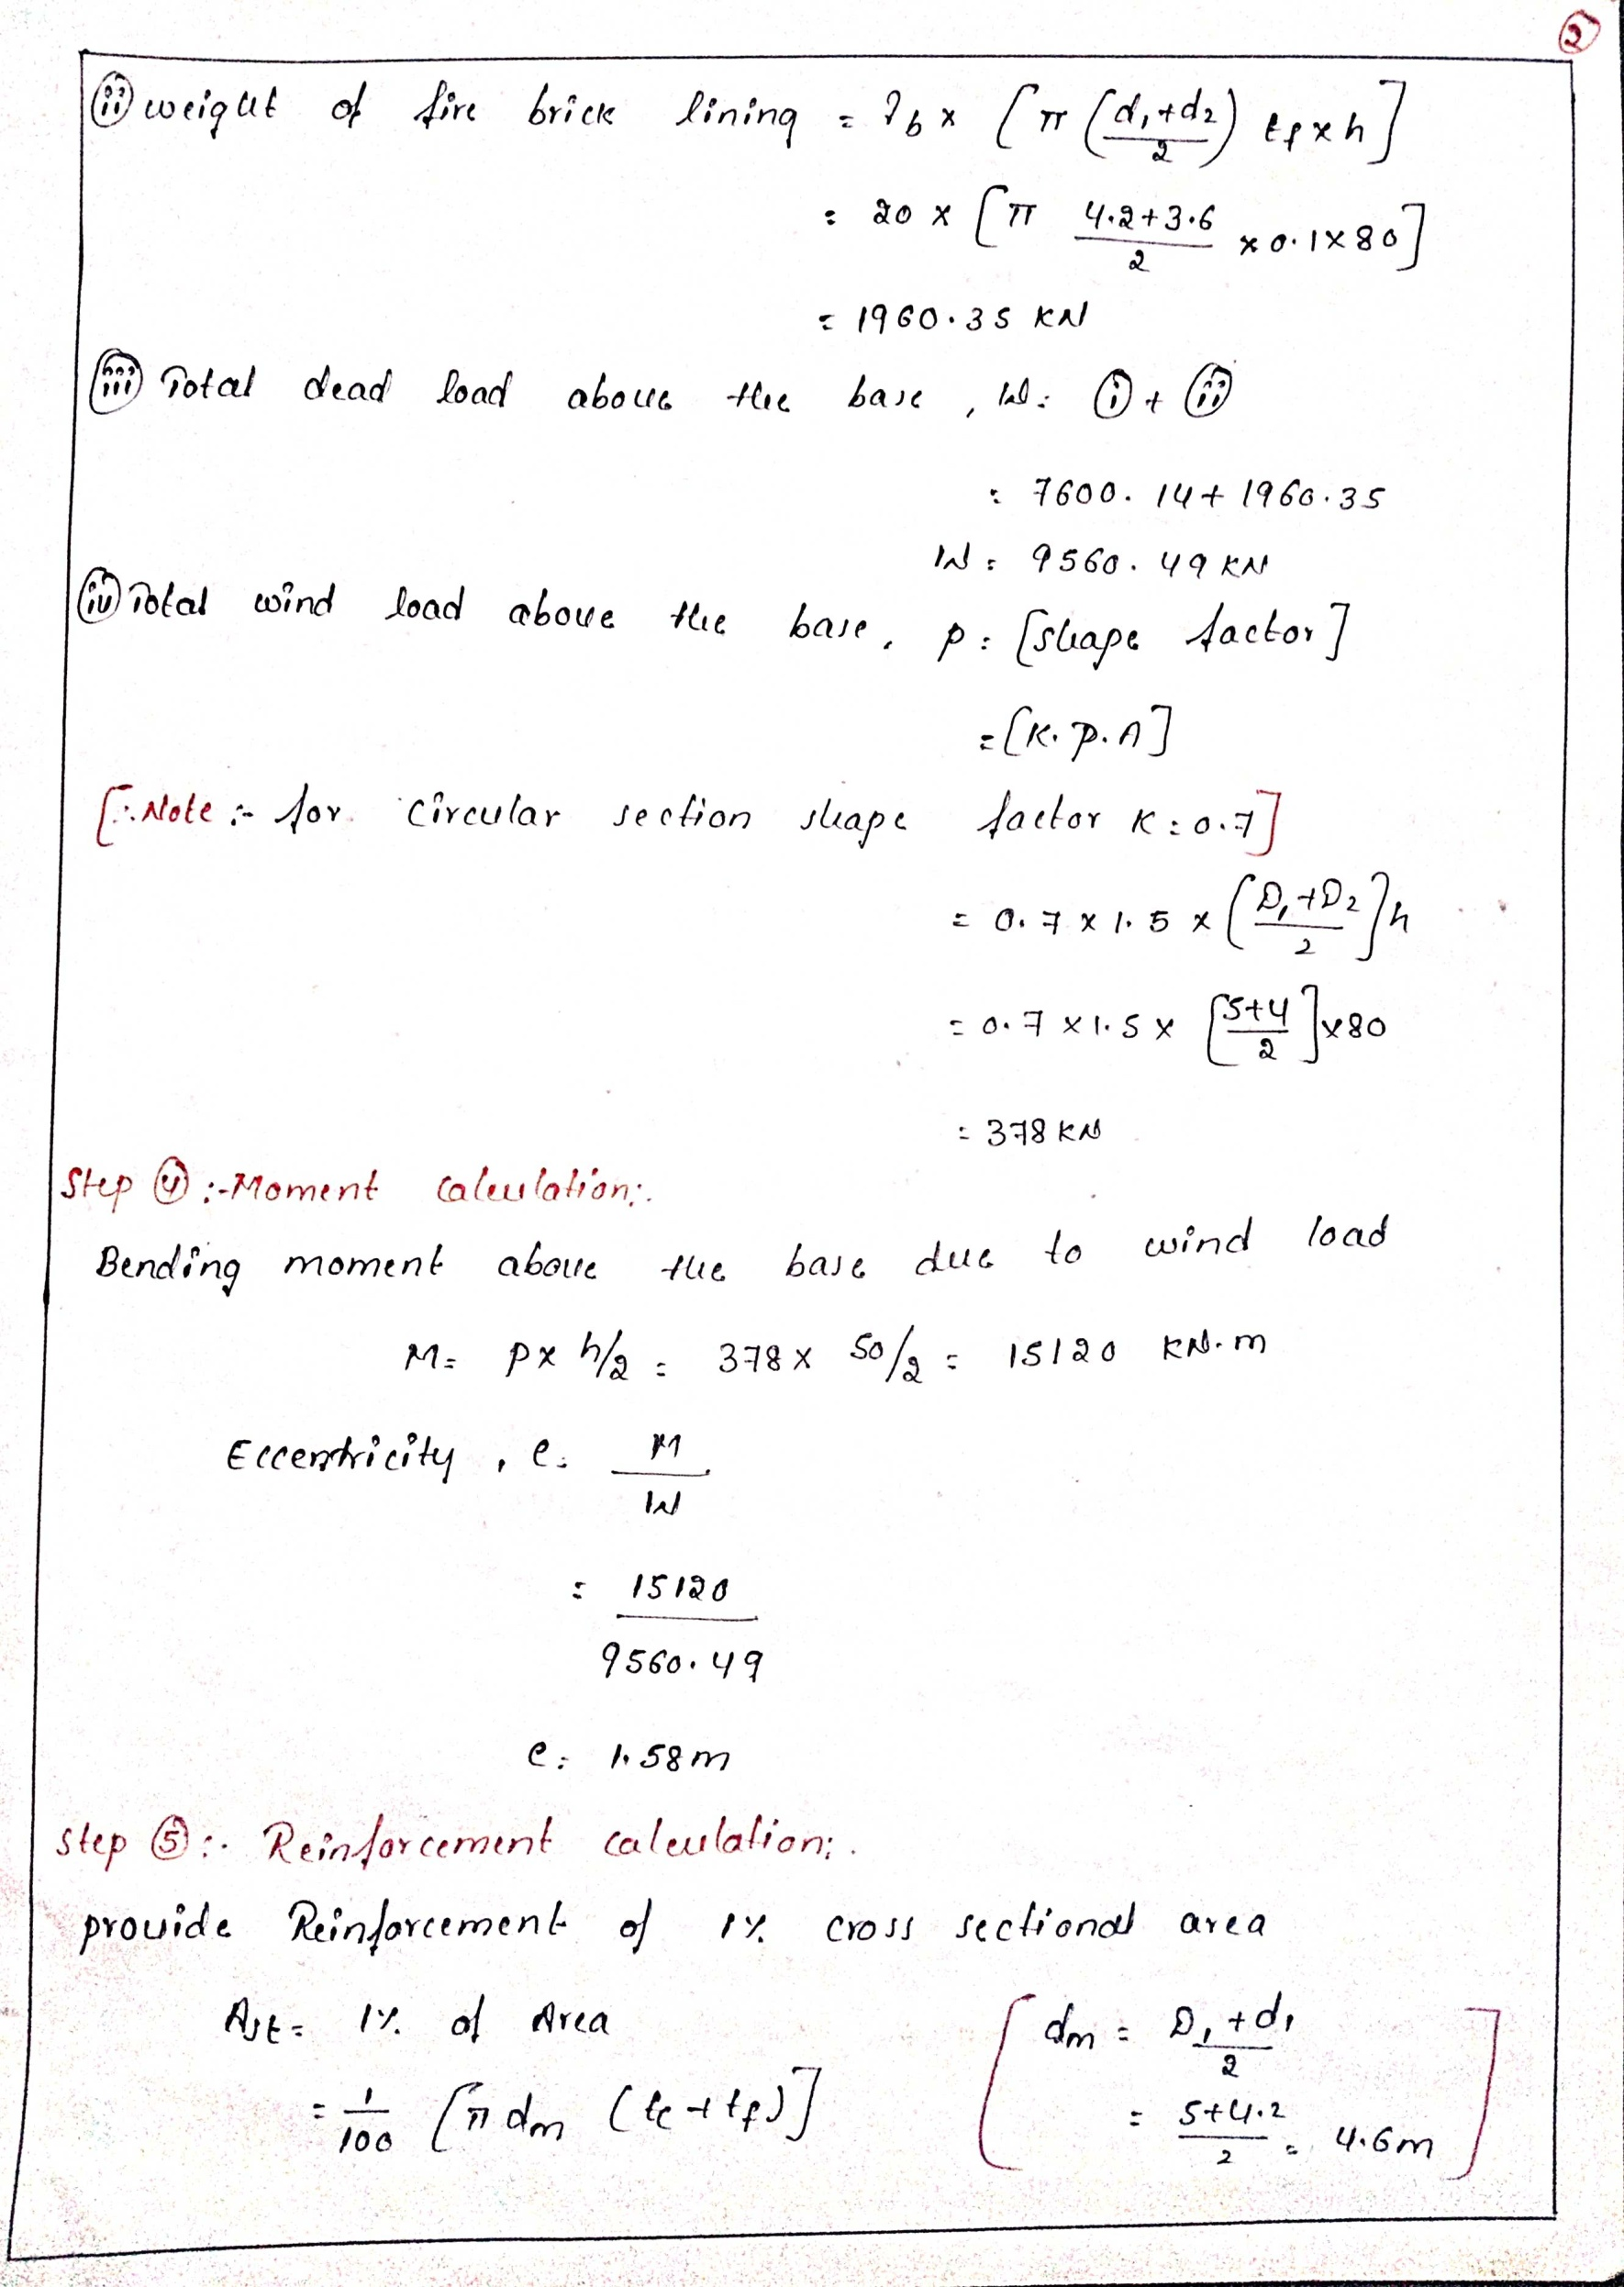 2
(ii) weight of fire brick lining = γb x [π (d1+d2/2) tf x h]
= 20 x [π 4.2+3.6/2 x 0.1 x 80]
= 1960.35 KN
(iii) Total dead load above the base, W = (i) + (ii)
= 7600.14 + 1960.35
W = 9560.49 KN
(iv) Total wind load above the base, p = [shape factor]
= [K. P. A]
[∴ Note :- for circular section shape factor K = 0.7]
= 0.7 x 1.5 x [D1+D2/2] h
= 0.7 x 1.5 x [5+4/2] x 80
= 378 KN
Step (4) :- Moment calculation:.
Bending moment above the base due to wind load
M = P x h/2 = 378 x 50/2 = 15120 KN.m
Eccentricity, e = M/W
= 15120/9560.49
e = 1.58m
Step (5) :. Reinforcement calculation:.
provide Reinforcement of 1% cross sectional area
Ast = 1% of Area
= 1/100 [π dm (tc + tf)]
[dm = D1+d1/2
= 5+4.2/2 = 4.6m]